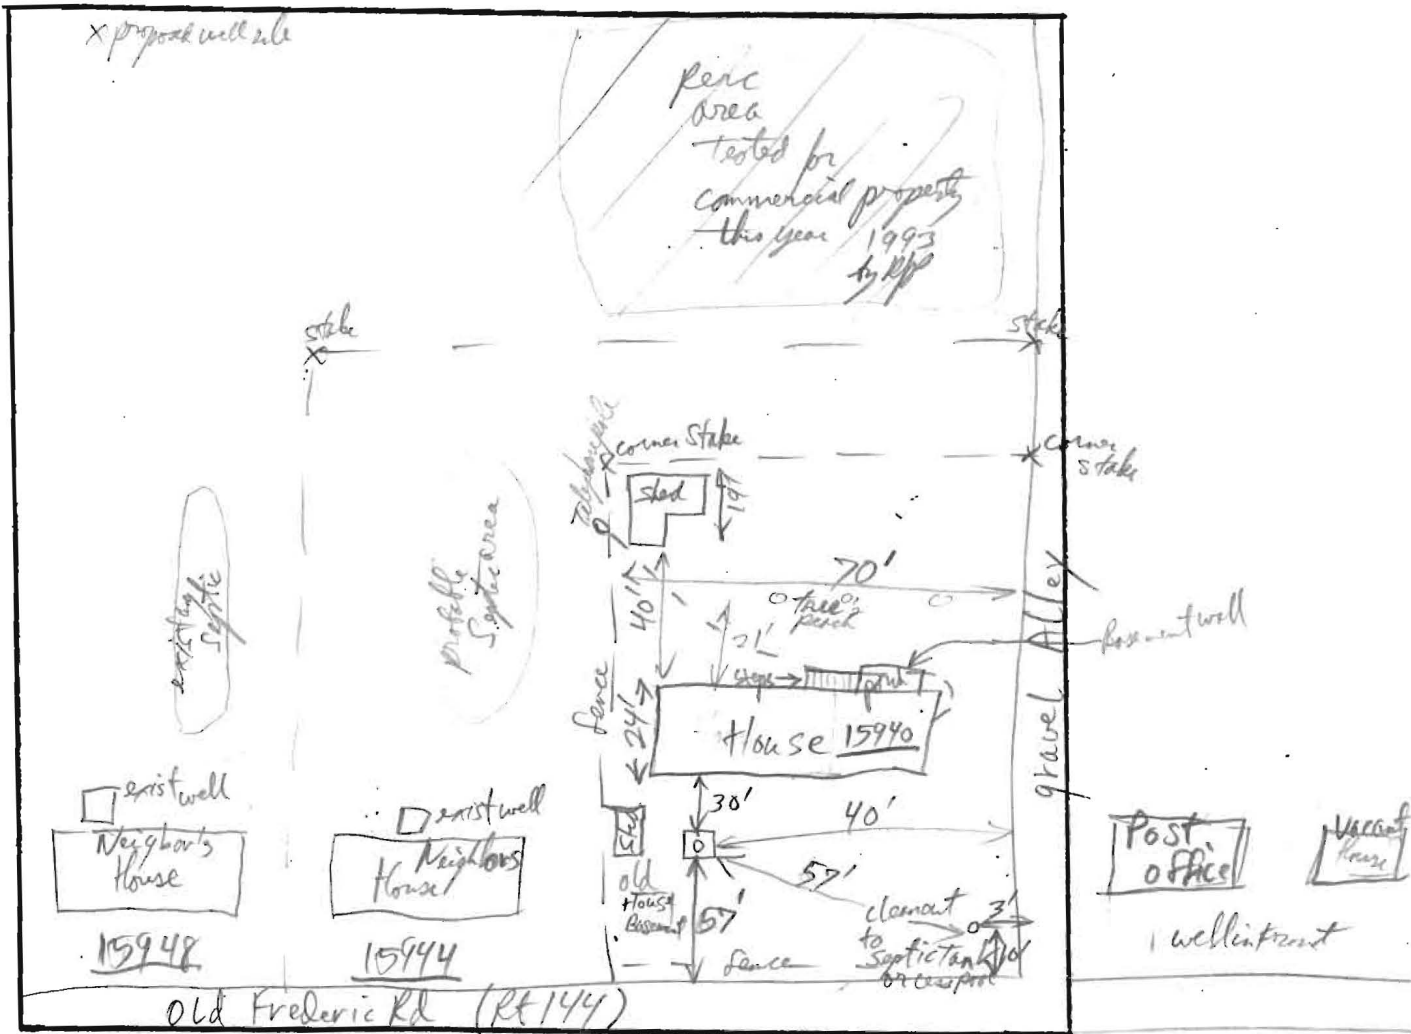 x proposed well site
perc
area
Tested for
commercial property
this year 1993
stake
stake
corner Stake
corner
stake
shed
19'
70'
40'
21'
tree
existing
Septic
probable
Septic area
fence
24'
steps →
porch
Basement wall
gravel Alley
House 15940
exist well
Neighbor's
House
15948
exist well
Neighbors
House
15944
Shed
old
House
Basement
30'
40'
57'
57'
cleanout
to
septic tank
or cesspool
3'
fence
Post
office
Vacant
House
well in front
Old Frederic Rd (Rt 144)